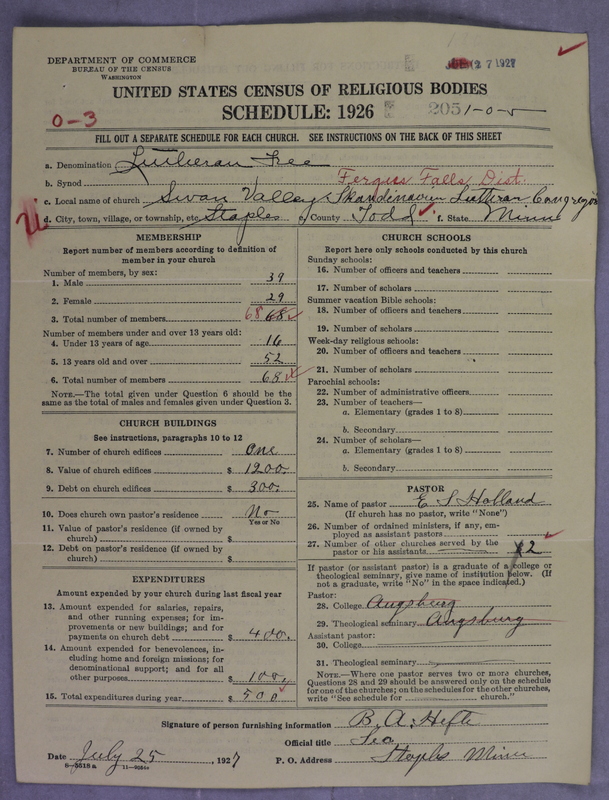 DEPARTMENT OF COMMERCE
BUREAU OF THE CENSUS
WASHINGTON
27 1927
UNITED STATES CENSUS OF RELIGIOUS BODIES
SCHEDULE: 1926
0-3
2051-0-5
FILL OUT A SEPARATE SCHEDULE FOR EACH CHURCH. SEE INSTRUCTIONS ON THE BACK OF THIS SHEET
a. Denomination Lutheran Free
b. Synod Fergus Falls Dist.
c. Local name of church Swan Valley Skandenavien Lutheran Congregation
d. City, town, village, or township, etc. Staples e. County Todd f. State Minn
MEMBERSHIP
Report number of members according to definition of member in your church
Number of members, by sex:
1. Male 39
2. Female 29
3. Total number of members 68 68
Number of members under and over 13 years old:
4. Under 13 years of age 16
5. 13 years old and over 52
6. Total number of members 68
NOTE.—The total given under Question 6 should be the same as the total of males and females given under Question 3.
CHURCH BUILDINGS
See instructions, paragraphs 10 to 12
7. Number of church edifices One
8. Value of church edifices $ 1200.
9. Debt on church edifices $ 300.
10. Does church own pastor's residence? No
Yes or No
11. Value of pastor's residence (if owned by church) $
12. Debt on pastor's residence (if owned by church) $
EXPENDITURES
Amount expended by your church during last fiscal year
13. Amount expended for salaries, repairs, and other running expenses; for improvements or new buildings; and for payments on church debt $ 400.
14. Amount expended for benevolences, including home and foreign missions; for denominational support; and for all other purposes $ 100.
15. Total expenditures during year $ 500
CHURCH SCHOOLS
Report here only schools conducted by this church
Sunday schools:
16. Number of officers and teachers
17. Number of scholars
Summer vacation Bible schools:
18. Number of officers and teachers
19. Number of scholars
Week-day religious schools:
20. Number of officers and teachers
21. Number of scholars
Parochial schools:
22. Number of administrative officers
23. Number of teachers—
a. Elementary (grades 1 to 8)
b. Secondary
24. Number of scholars—
a. Elementary (grades 1 to 8)
b. Secondary
PASTOR
25. Name of pastor E S Holland
(If church has no pastor, write "None")
26. Number of ordained ministers, if any, employed as assistant pastors
27. Number of other churches served by the pastor or his assistants 2
If pastor (or assistant pastor) is a graduate of a college or theological seminary, give name of institution below. (If not a graduate, write "No" in the space indicated.)
Pastor:
28. College Augsburg
29. Theological seminary Augsburg
Assistant pastor:
30. College
31. Theological seminary
NOTE.—Where one pastor serves two or more churches, Questions 28 and 29 should be answered only on the schedule for one of the churches; on the schedules for the other churches, write "See schedule for church."
Signature of person furnishing information B. A. Hefte
Official title Sec
Date July 25, 1927 P. O. Address Staples Minn
8-5518a